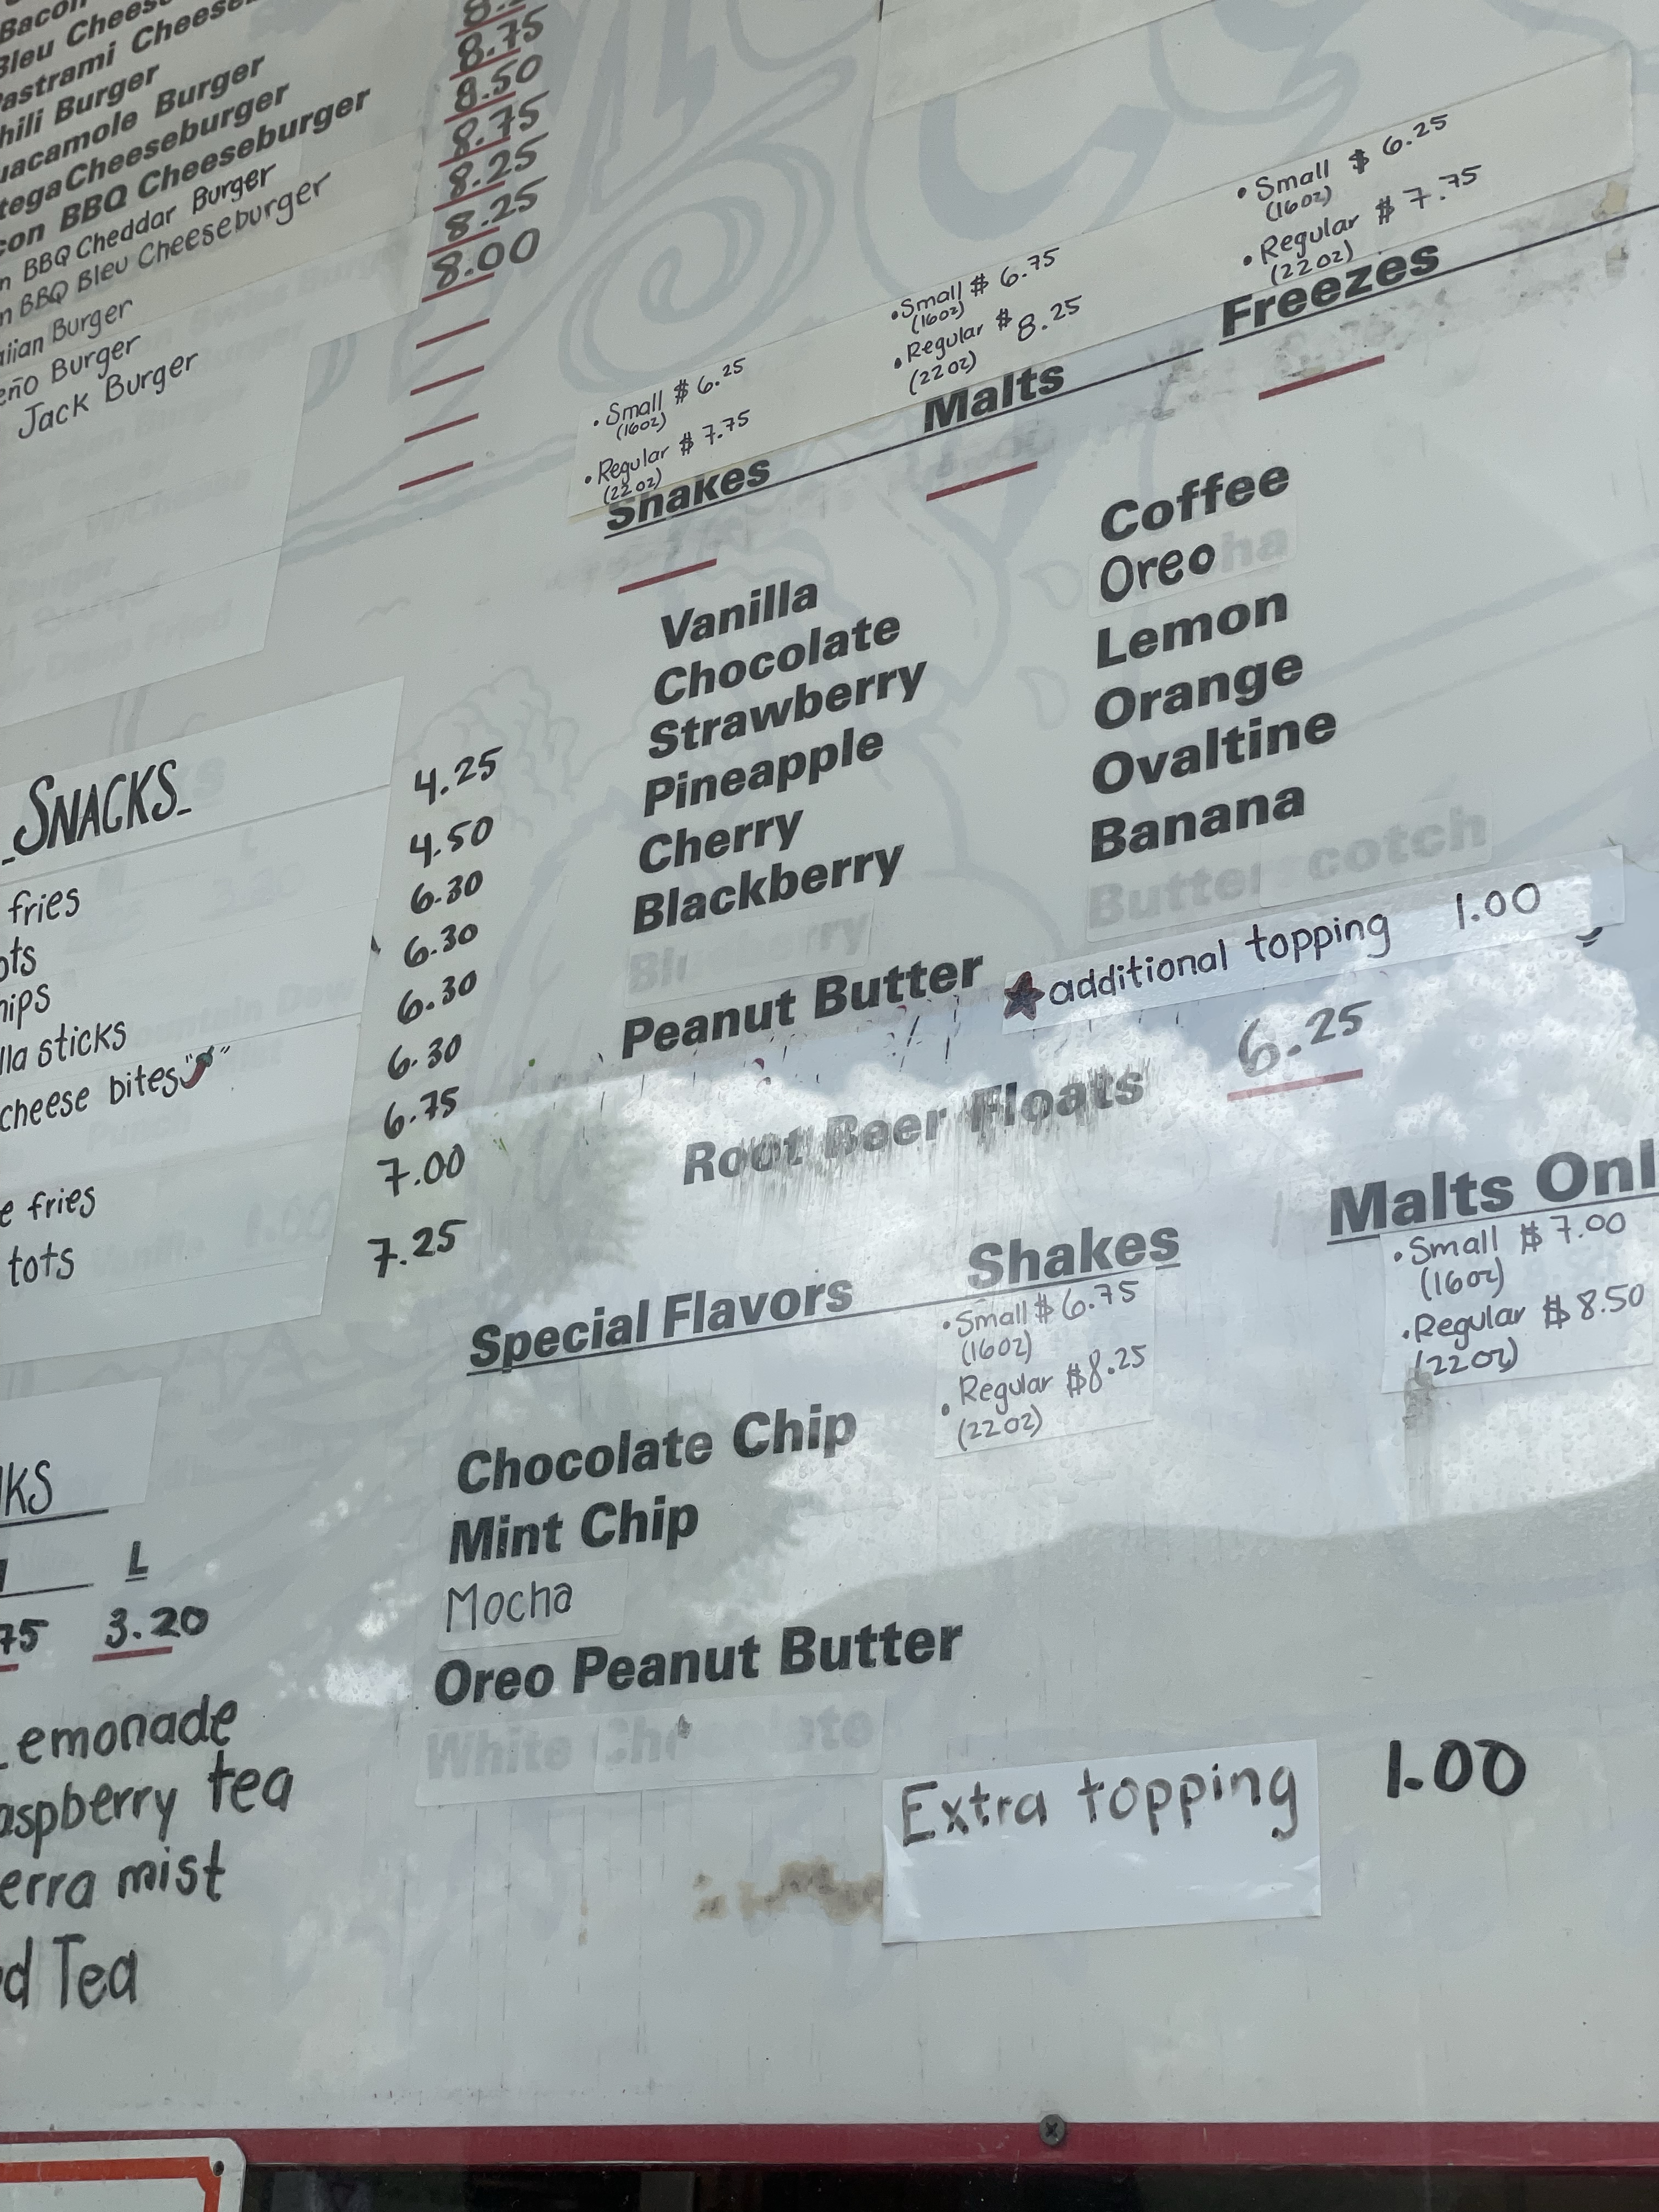 Bacon
Bleu Chees
Pastrami Cheese
hili Burger
uacamole Burger
tegaCheeseburger
con BBQ Cheeseburger
n BBQ Cheddar Burger
n BBQ Bleu Cheeseburger
aiian Burger
eño Burger
Jack Burger
8.75
8.50
8.75
8.25
8.25
8.00
SNACKS
fries
ots
hips
lla sticks
cheese bites
e fries
tots
4.25
4.50
6.30
6.30
6.30
6.30
6.75
7.00
7.25
KS
L
75 3.20
Lemonade
aspberry tea
erra mist
d Tea
• Small $ 6.25
(16oz)
• Regular $ 7.75
(22oz)
Shakes
• Small $ 6.75
(16oz)
• Regular $ 8.25
(22oz)
Malts
• Small $ 6.25
(16oz)
• Regular $ 7.75
(22oz)
Freezes
Vanilla
Chocolate
Strawberry
Pineapple
Cherry
Blackberry
Peanut Butter
Coffee
Oreo
Lemon
Orange
Ovaltine
Banana
Butterscotch
★additional topping 1.00
Root Beer Floats 6.25
Special Flavors
Shakes
• Small $ 6.75
(16oz)
• Regular $8.25
(22oz)
Malts Onl
• Small $ 7.00
(16oz)
• Regular $ 8.50
(22oz)
Chocolate Chip
Mint Chip
Mocha
Oreo Peanut Butter
White Chocolate
Extra topping 1.00